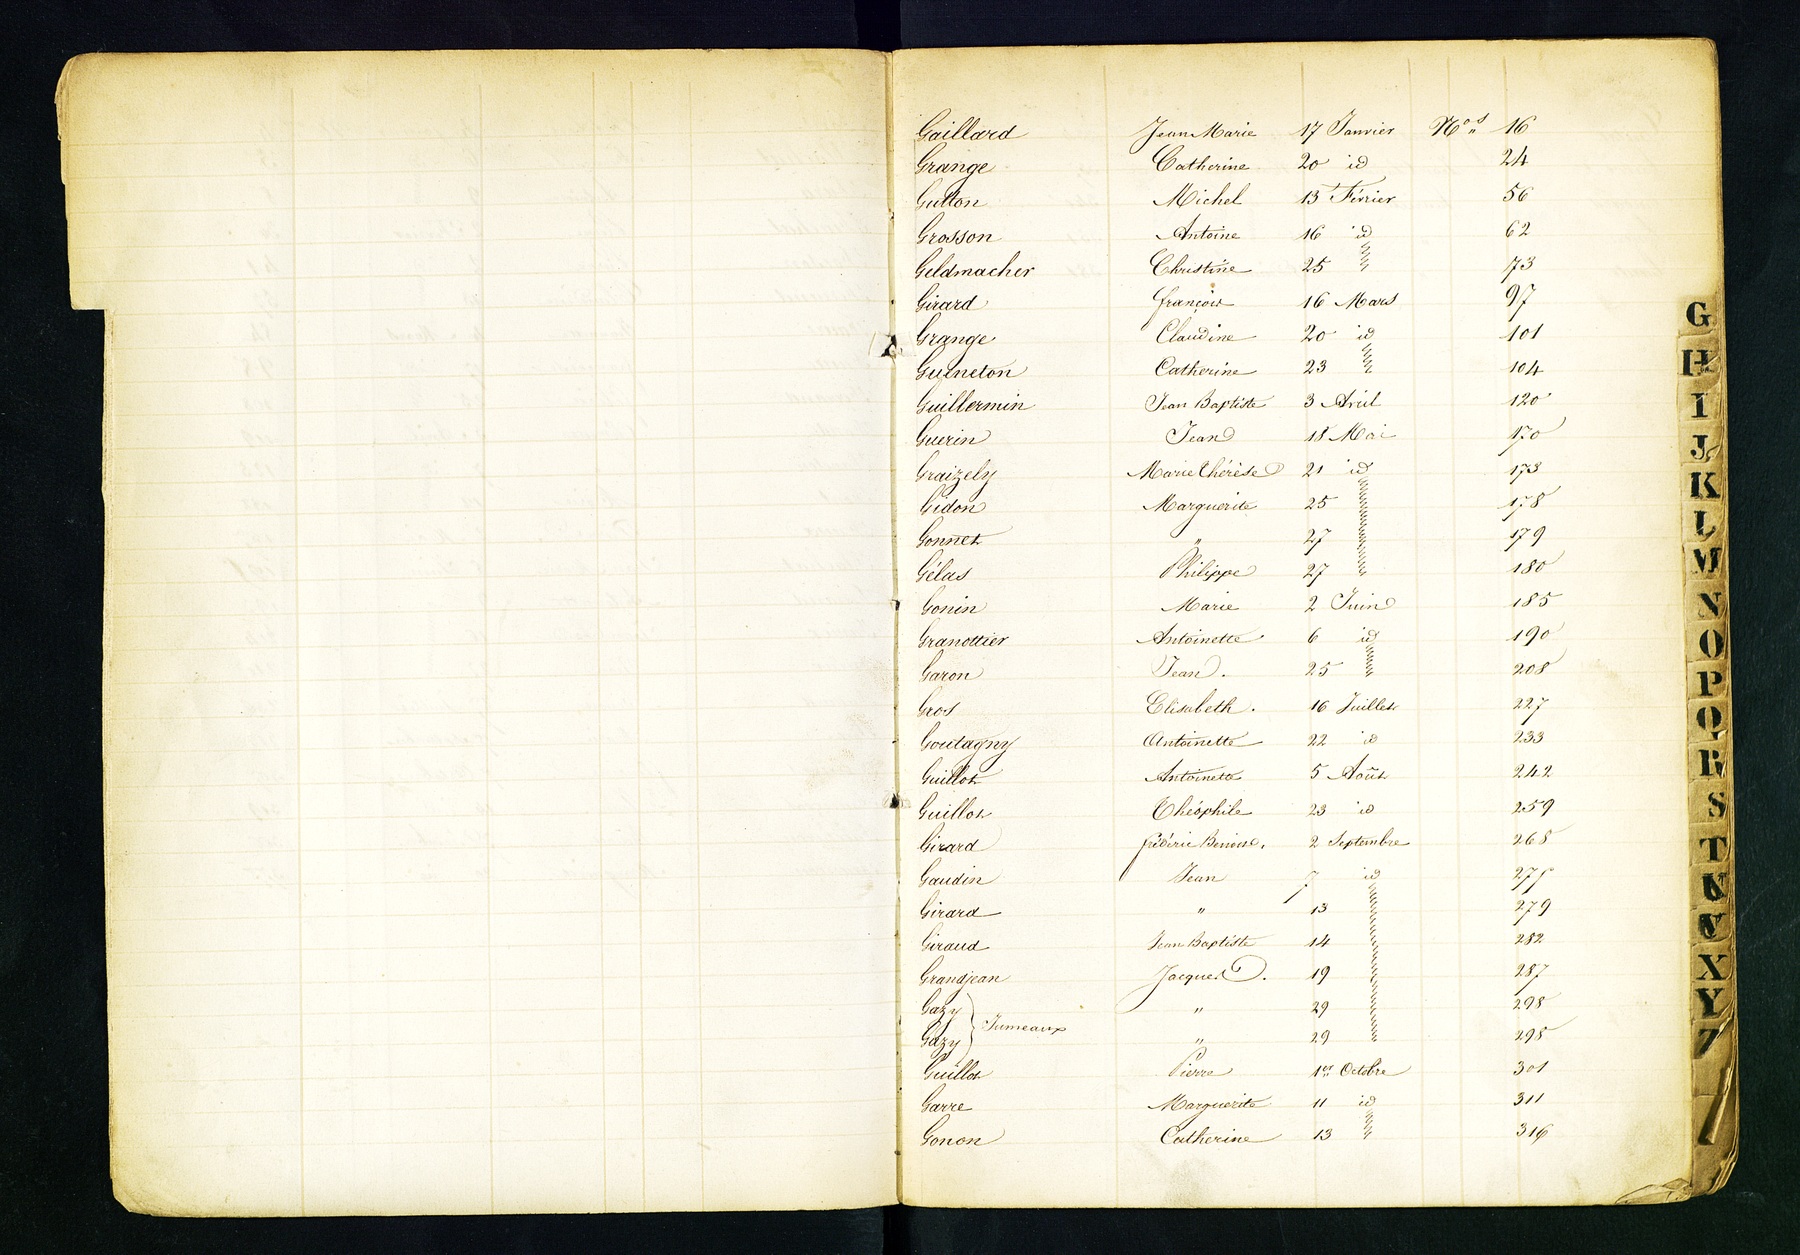 Gaillard Jean Marie 17 Janvier Nos 16
Grange Catherine 20 id 24
Gutton Michel 13 Février 56
Grosson Antoine 16 id 62
Geldmacher Christine 25 " 73
Girard françois 16 Mars 97
Grange Claudine 20 id 101
Guéneton Catherine 23 " 104
Guillermin Jean Baptiste 3 Avril 120
Guerin Jean 18 Mai 170
Graizely Marie thérèse 21 id 173
Gidon Marguerite 25 " 178
Gonnet " 27 " 179
Gélas Philippe 27 " 180
Gonin Marie 2 Juin 185
Granottier Antoinette 6 id 190
Garon Jean. 25 " 208
Gros Elisabeth. 16 Juillet 227
Goutagny Antoinette 22 id 233
Guillot Antoinette 5 Août 242
Guillot Théophile 23 id 259
Girard frédéric Benoist. 2 Septembre 268
Gaudin Jean 7 id
Girard " 13 " 279
Giraud Jean Baptiste 14 " 282
Grandjean Jacques. 19 " 287
Gazy " 29 " 298
Jumeaux
Gazy " 29 " 298
Guillot Pierre 1er Octobre 301
Garre Marguerite 11 id 311
Gonon Catherine 13 " 316
G
H
I
J
K
L
M
N
O
P
Q
R
S
T
U
V
X
Y
Z